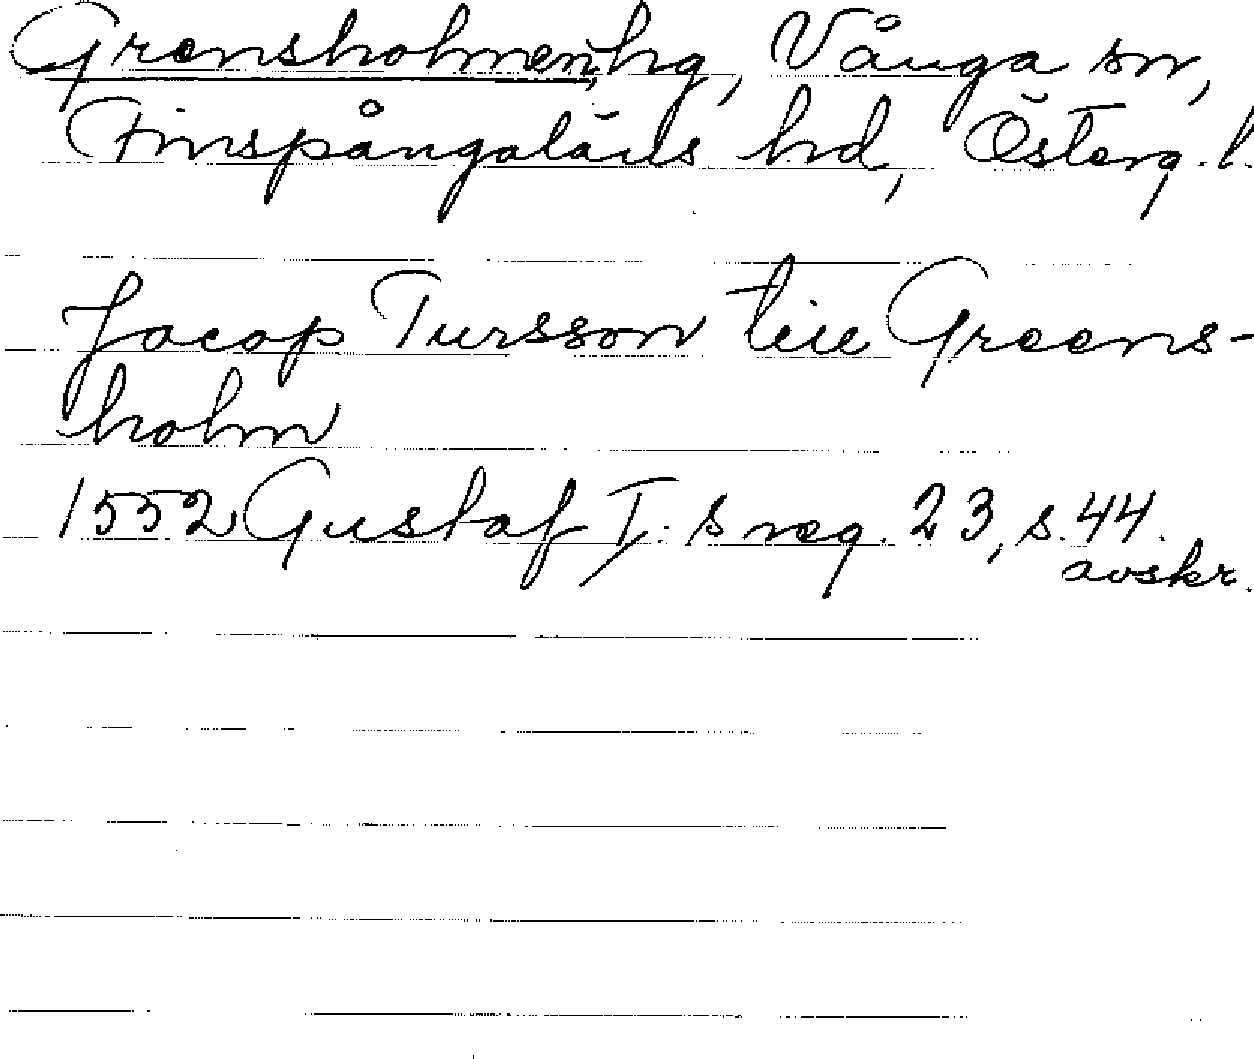 Grensholmen, hg, Vånga sn,
Finspångaläns hd, Österg. l.
Jacop Tursson till Greens-
holm
1552 Gustaf I:s reg. 23, s. 44.
avskr.